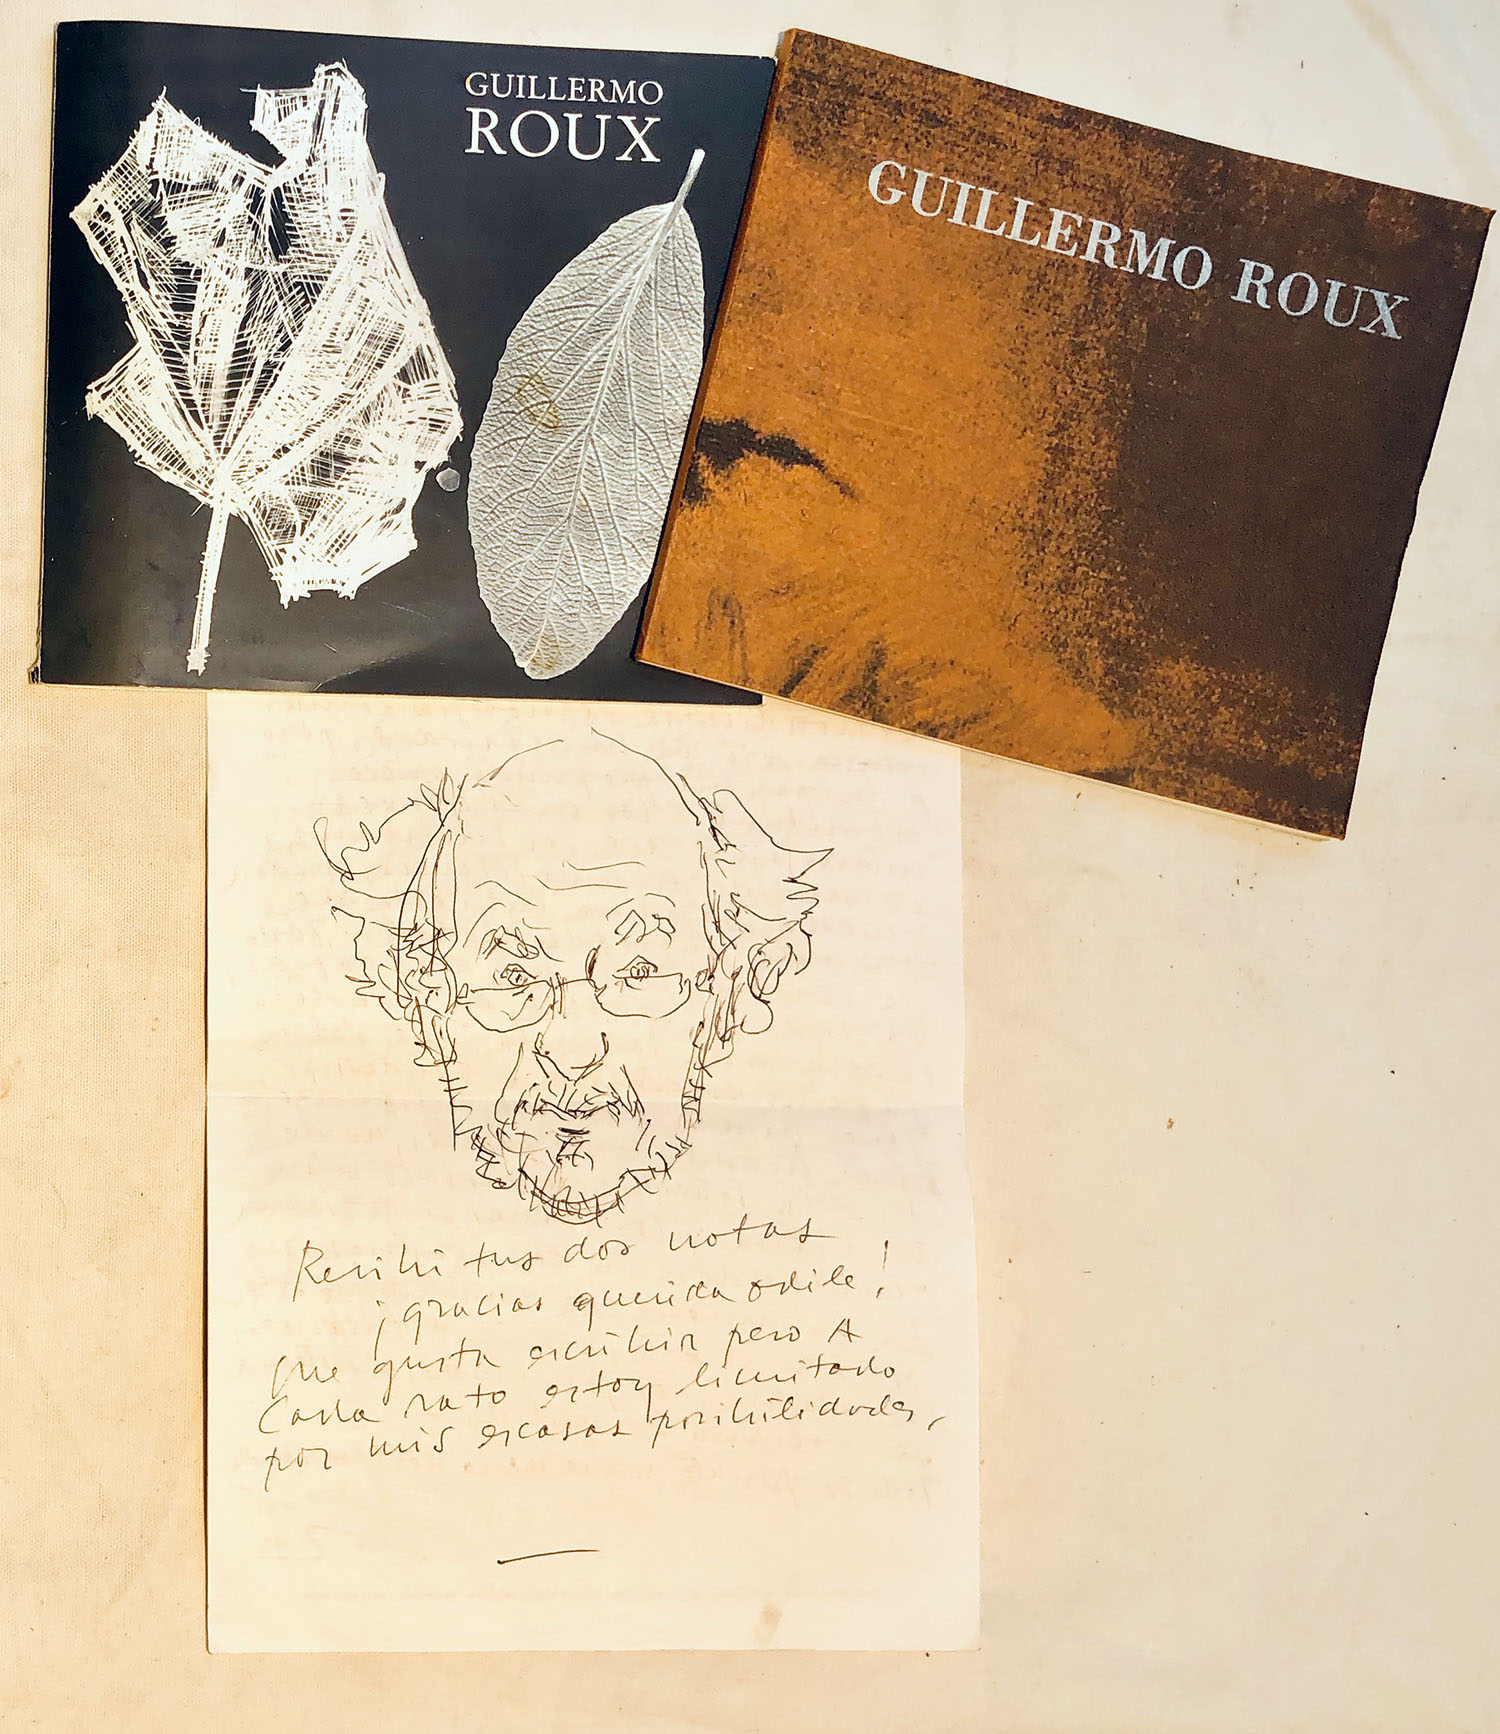 GUILLERMO
ROUX
GUILLERMO ROUX
Recibi tus dos notas
¡gracias querida Odile!
Me gusta escribir pero A
Cada rato estoy limitado
por mis escasas posibilidades,